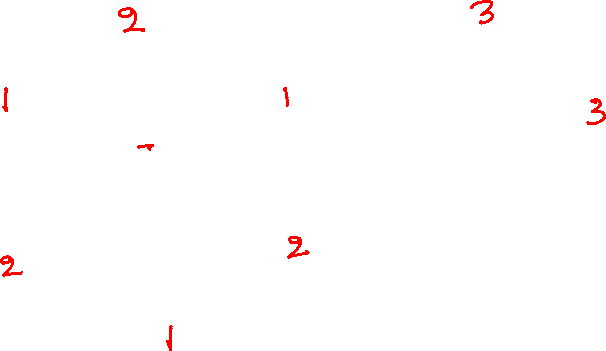 2 3
1 1 3
-
2 2
1